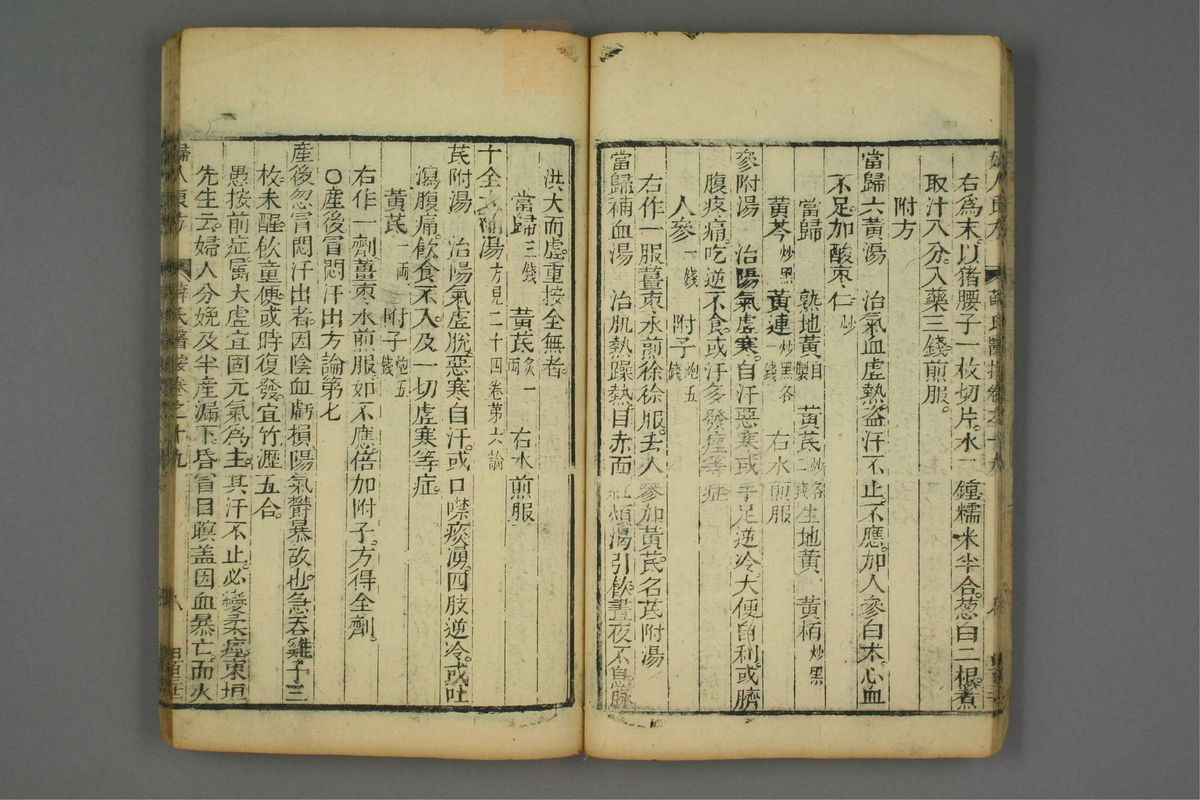 右爲末。以猪腰子一枚切片。水一鍾糯米半合。葱白二根。煮
取汁八分。入藥三錢煎服。
附方
當歸六黃湯 治氣血虛熱。盗汗不止。不應。加人參白术。心血
不足。加酸棗仁炒
當歸 熟地黃自製 黃芪炒各二錢 生地黃 黃栢炒黑
黃芩炒黑 黃連炒黑各一錢 右水煎服
參附湯 治陽氣虛寒。自汗惡寒。或手足逆冷。大便自利。或臍
腹疼痛。吃逆不食。或汗多發痙等症
人參一錢 附子炮五錢
右作一服。薑棗水煎。徐徐服。去人參加黃芪。名芪附湯
當歸補血湯 治肌熱躁熱。目赤面紅。煩渴引飲。晝夜不息。脉
洪大而虛。重按全無者。
當歸三錢 黃芪炙一兩 右水煎服
十全大補湯方見二十四卷第六論
芪附湯 治陽氣虛脫。惡寒自汗。或口噤痰湧。四肢逆冷。或吐
瀉腹痛。飲食不入。及一切虛寒等症。
黃芪一兩 附子炮五錢
右作一劑。薑棗水煎服。如不應。倍加附子。方得全劑。
○產後冒悶汗出方論第七
產後忽冒悶汗出者。因陰血虧損。陽氣鬱暴故也。急吞雞子三
枚。未醒。飲童便。或時復發。宜竹瀝五合。
愚按前症。屬大虛。宜固元氣爲主。其汗不止。必變柔痙。東垣
先生云。婦人分娩。及半產漏下。昏冒目瞑。盖因血暴亡。而火
婦人良方 薛氏醫按卷之十九 八